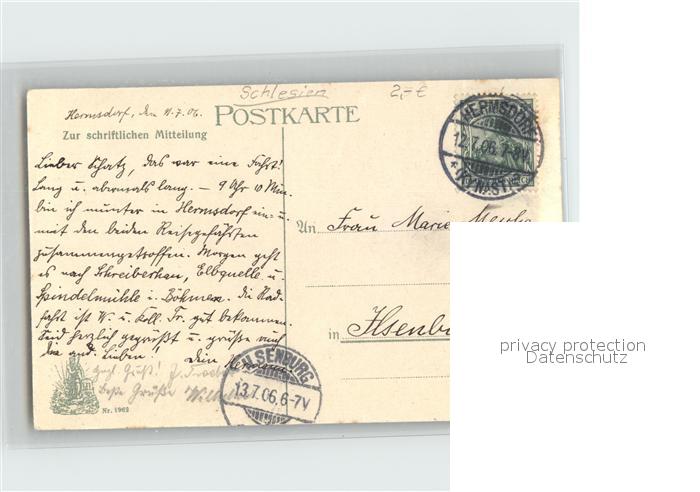 Schlesien
2,- €
Hermsdorf, den 11.7.06.
POSTKARTE
Zur schriftlichen Mitteilung
HERMSDORF
12.7.06. 7-8V
(KYNAST)
Lieber Schatz, das war eine Fahrt!
Lang u. abermals lang. – 9 Uhr 10 Min.
bin ich munter in Hermsdorf ein- u.
mit den beiden Reisegefährten
zusammengetroffen. Morgen geht
es nach Schreiberhau, Elbquelle u.
Spindelmühle i. Böhmen. Die Rad-
fahrt ist W. u. Koll. Tr. gut bekommen.
Seid herzlich gegrüßt u. grüße mir
die and. Lieben! Dein Hermann
Gruß!
Beste Grüße
An Frau Marie
in Ilsenbu
ILSENBURG
13.7.06.6-7V
Nr. 1962
privacy protection
Datenschutz